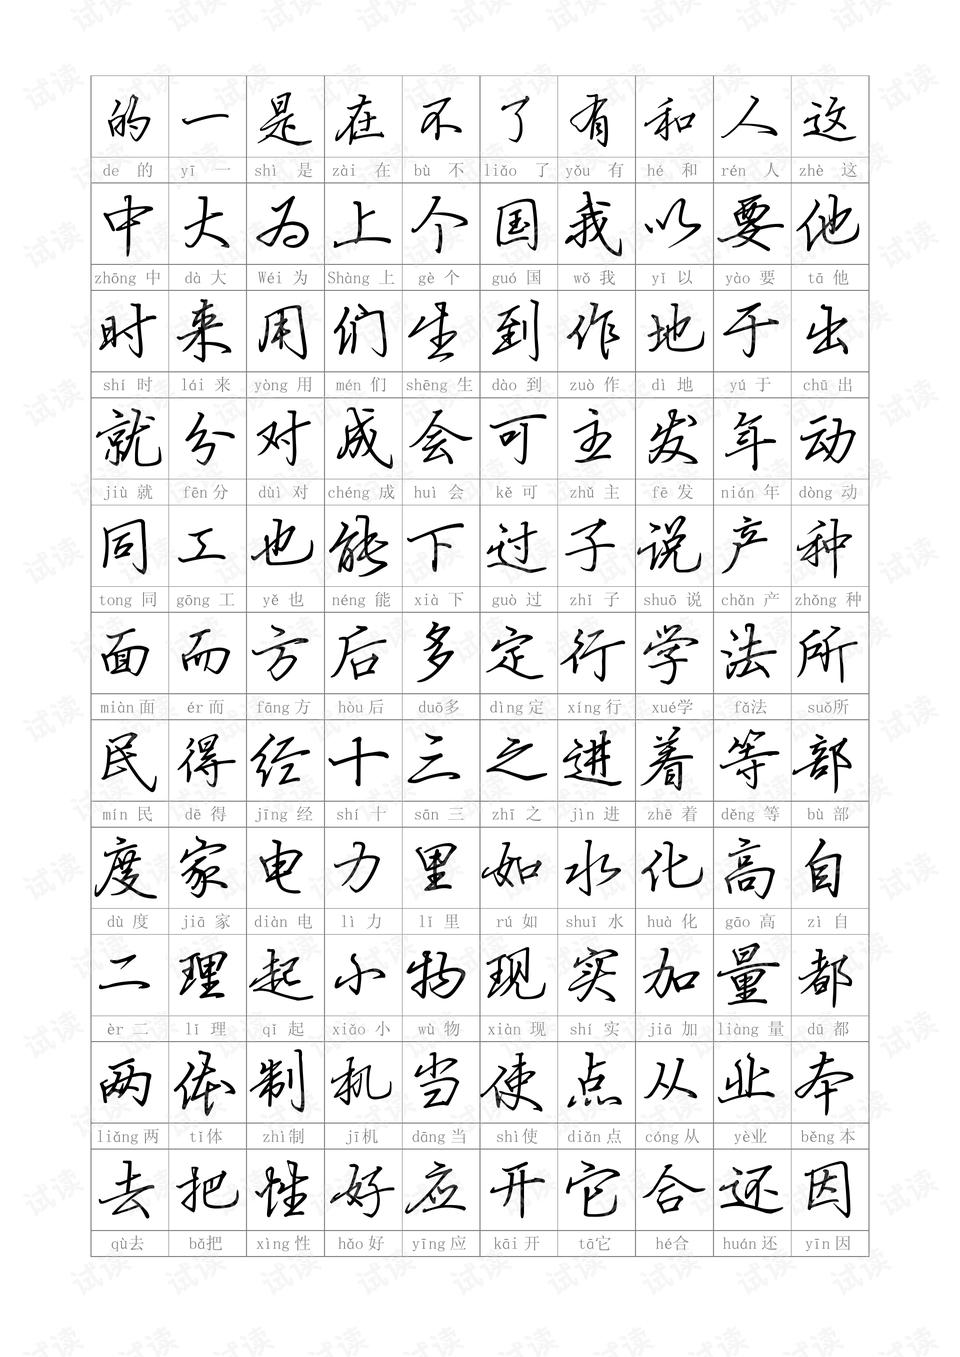 的 一 是 在 不 了 有 和 人 这
de 的 yī 一 shì 是 zài 在 bù 不 liǎo 了 yǒu 有 hé 和 rén 人 zhè 这
中 大 为 上 个 国 我 以 要 他
zhōng 中 dà 大 Wéi 为 Shàng 上 gè 个 guó 国 wǒ 我 yǐ 以 yào 要 tā 他
时 来 用 们 生 到 作 地 于 出
shí 时 lái 来 yòng 用 mén 们 shēng 生 dào 到 zuò 作 dì 地 yú 于 chū 出
就 分 对 成 会 可 主 发 年 动
jiù 就 fēn 分 duì 对 chéng 成 huì 会 kě 可 zhǔ 主 fē 发 nián 年 dòng 动
同 工 也 能 下 过 子 说 产 种
tong 同 gōng 工 yě 也 néng 能 xià 下 guò 过 zhǐ 子 shuō 说 chǎn 产 zhǒng 种
面 而 方 后 多 定 行 学 法 所
miàn 面 ér 而 fāng 方 hòu 后 duō 多 dìng 定 xíng 行 xué 学 fǎ 法 suǒ 所
民 得 经 十 三 之 进 着 等 部
mín 民 dē 得 jīng 经 shí 十 sān 三 zhī 之 jìn 进 zhē 着 děng 等 bù 部
度 家 电 力 里 如 水 化 高 自
dù 度 jiā 家 diàn 电 lì 力 lǐ 里 rú 如 shuǐ 水 huà 化 gāo 高 zì 自
二 理 起 小 物 现 实 加 量 都
èr 二 lǐ 理 qǐ 起 xiǎo 小 wù 物 xiàn 现 shí 实 jiā 加 liàng 量 dū 都
两 体 制 机 当 使 点 从 业 本
liǎng 两 tǐ 体 zhì 制 jī 机 dāng 当 shì 使 diǎn 点 cóng 从 yè 业 běng 本
去 把 性 好 应 开 它 合 还 因
qù 去 bǎ 把 xìng 性 hǎo 好 yīng 应 kāi 开 tā 它 hé 合 huán 还 yīn 因
试读